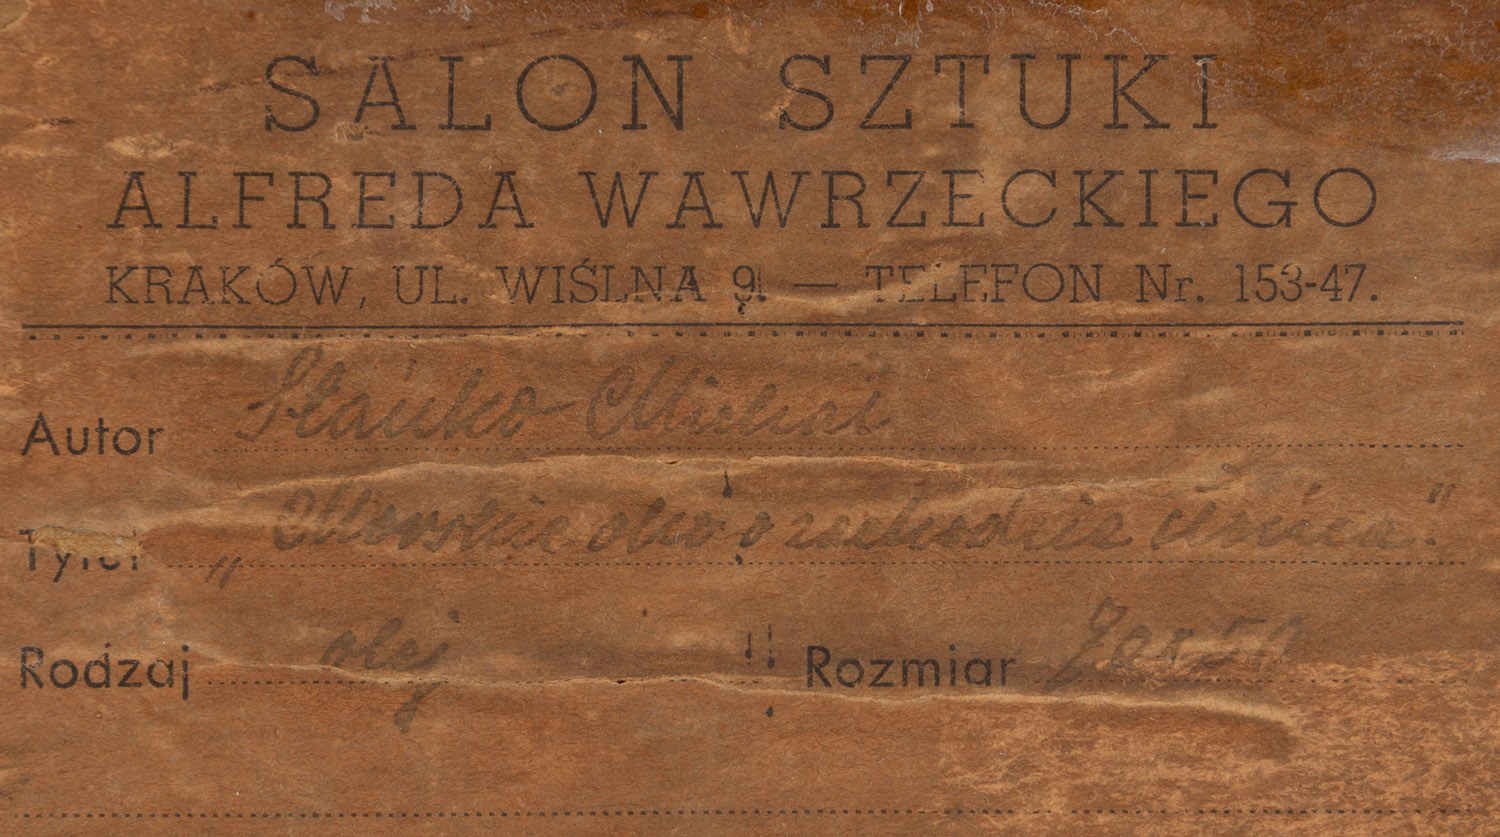 SALON SZTUKI
ALFREDA WAWRZECKIEGO
KRAKÓW, UL. WIŚLNA 9. — TELEFON Nr. 153-47.
Autor Stańko Michał
Tytuł „Morskie oko o zachodzie słońca."
Rodzaj olej Rozmiar